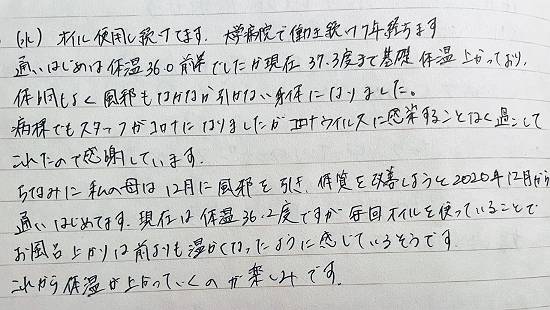 (水) オイル使用し続けてます。大学病院で働き続け7年経ちます
通いはじめは体温36.0前半でしたが現在37.3度まで基礎体温上がっており、
体調もよく風邪もなかなか引かない身体になりました。
病棟でもスタッフがコロナになりましたがコロナウイルスに感染することなく過ごして
これたので感謝しています。
ちなみに私の母は12月に風邪を引き、体質を改善しようと2020年12月から
通いはじめてます。現在は体温36.2度ですが毎回オイルを使っていることで
お風呂上がりは前よりも温かくなったように感じているそうです。
これから体温が上がっていくのが楽しみです。